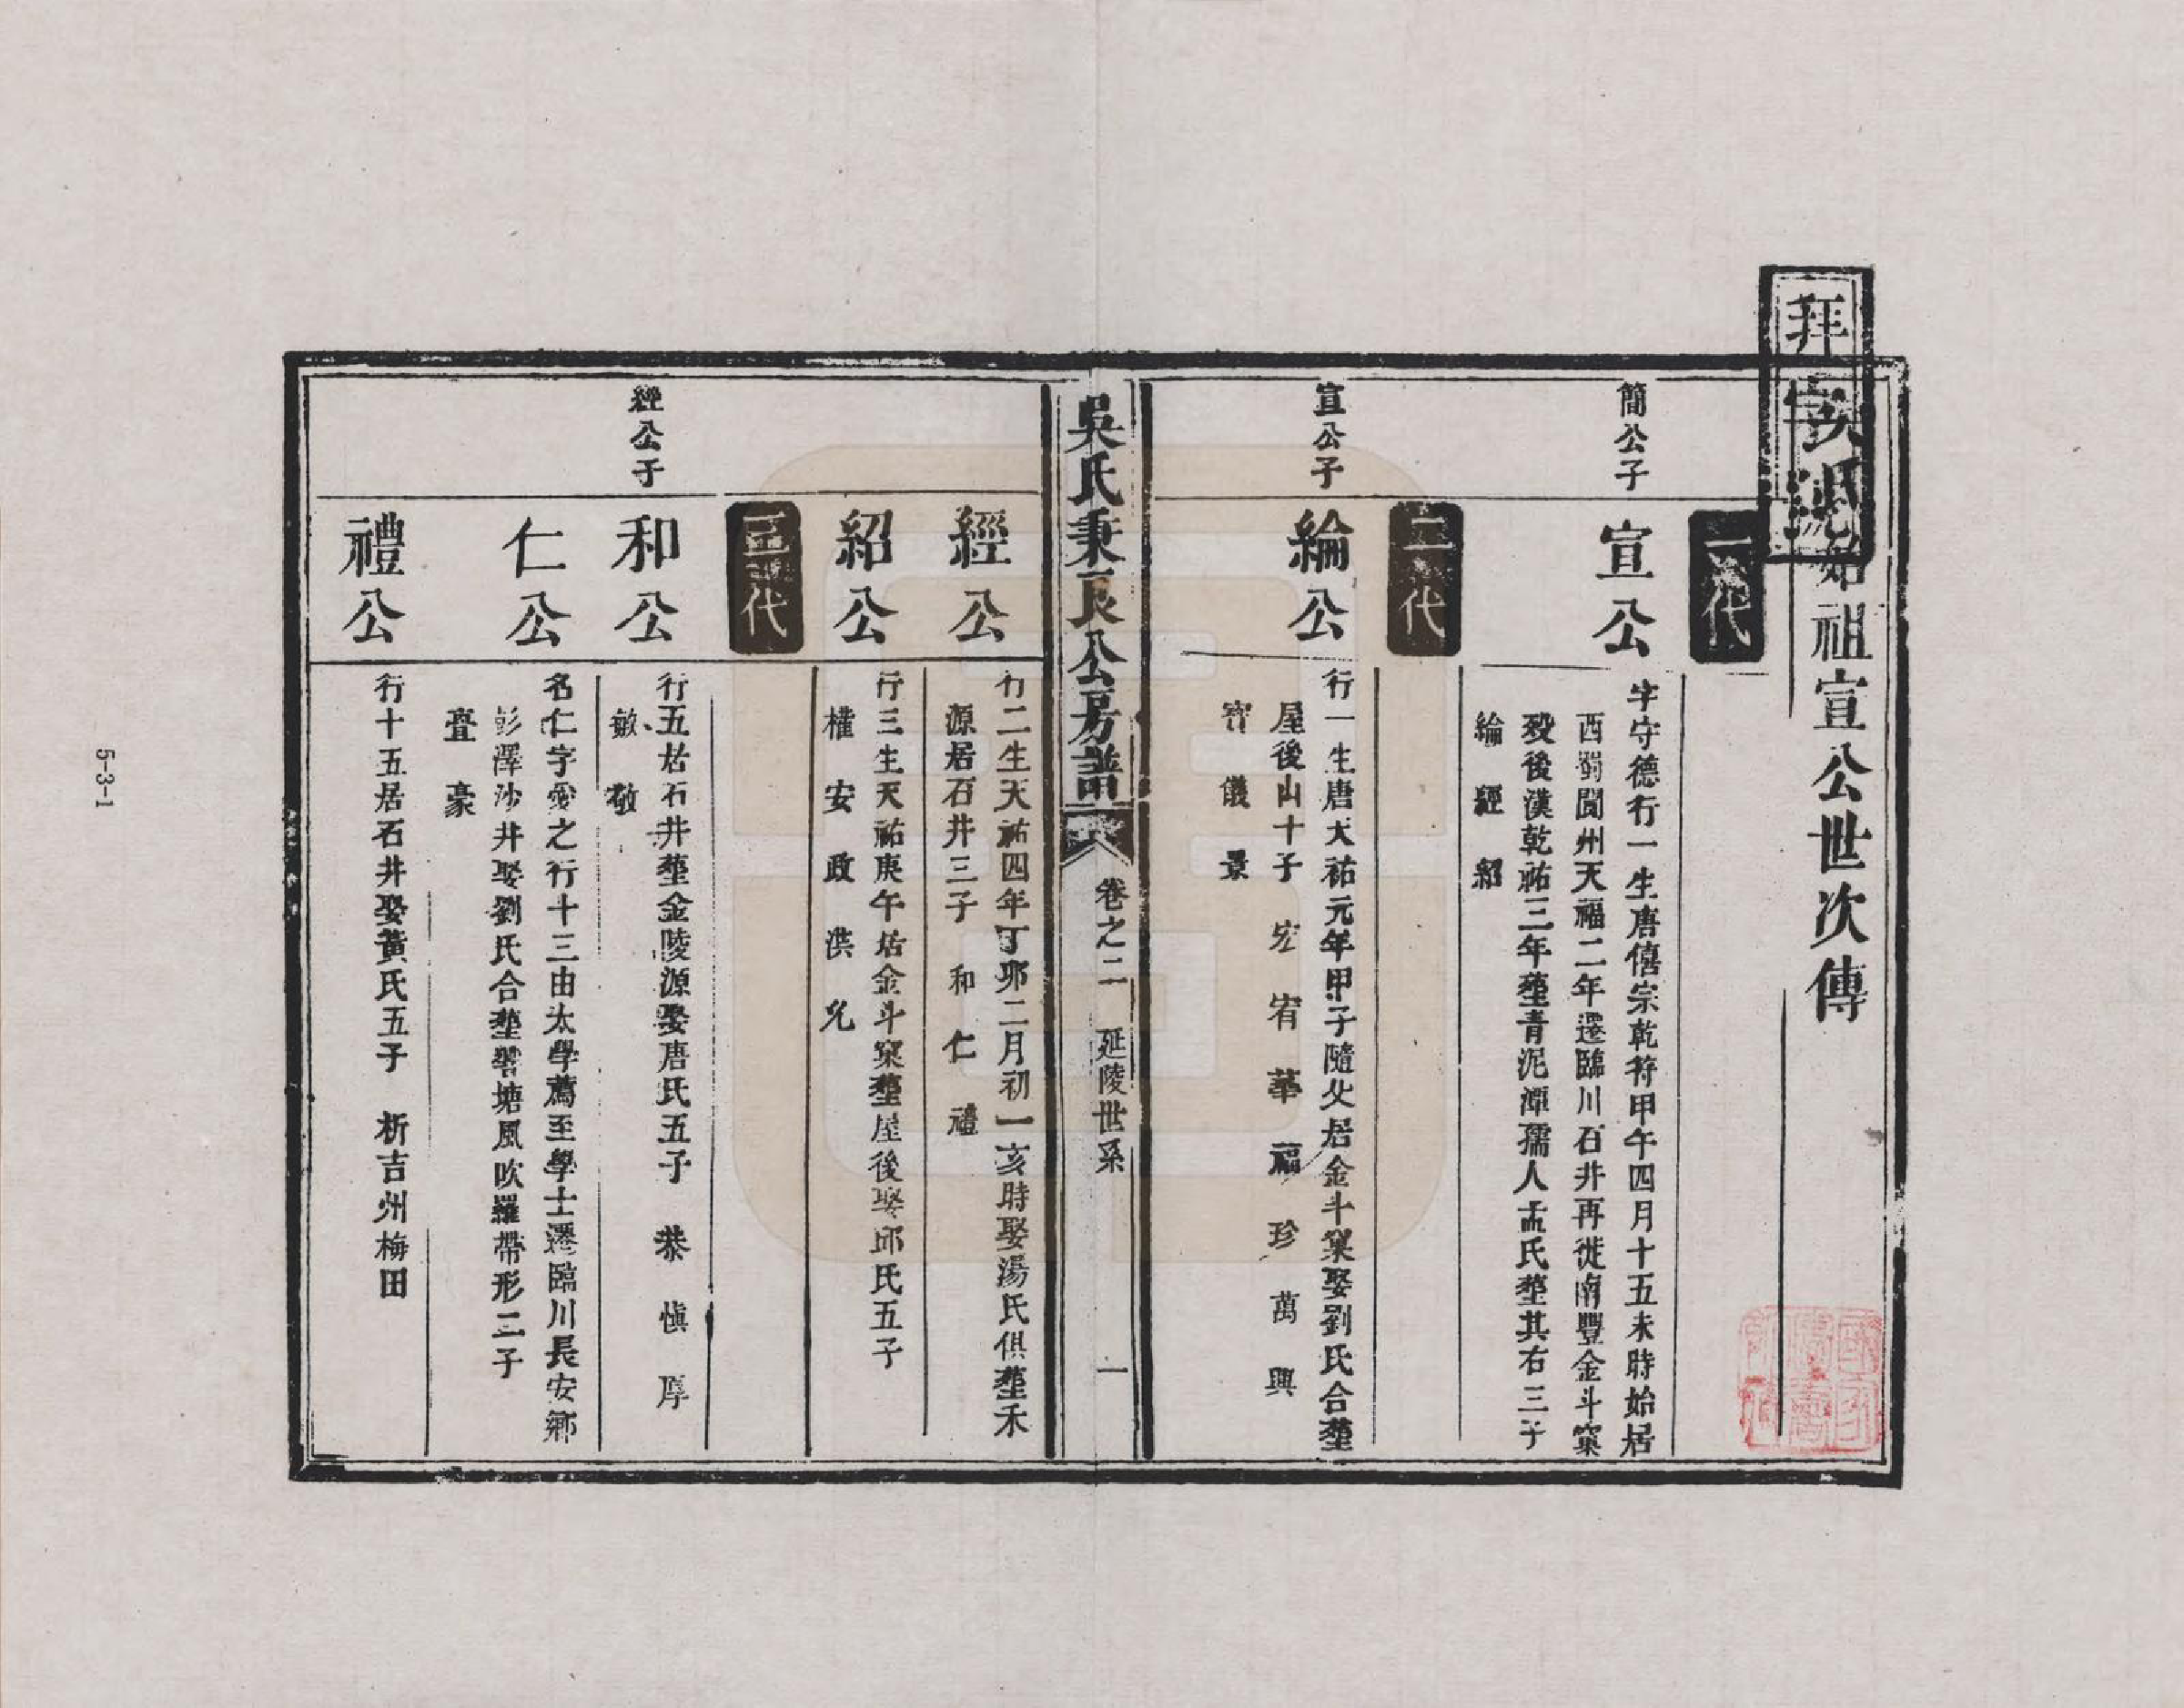 吳氏始祖宣公世次傳
拜字號
一代
簡公子
宣公
字守德行一生唐僖宗乾符甲午四月十五未時始居
西蜀閬州天福二年遷臨川石井再徙南豐金斗窠
歿後漢乾祐三年塟青泥潭孺人孟氏塟其右三子
綸 經 紹
二代
宣公子
綸公
行一生唐天祐元年甲子隨父居金斗窠娶劉氏合塟
屋後山十子 宏 宥 華 福 珍 萬 興
寶 儀 景
吳氏秉良公房譜 卷之二 延陵世系 一
經公
行二生天祐四年丁卯二月初一亥時娶湯氏俱塟禾
源居石井三子 和 仁 禮
紹公
行三生天祐庚午居金斗窠塟屋後娶邱氏五子
權 安 政 洪 兄
三代
經公子
和公
行五居石井塟金陵源娶唐氏五子 恭 慎 厚
敏 敬
仁公
名仁字愛之行十三由太學薦至學士遷臨川長安鄉
彭澤沙井娶劉氏合塟礬塘風吹羅帶形二子
亶 豪
禮公
行十五居石井娶黃氏五子 析吉州梅田
5-3-1